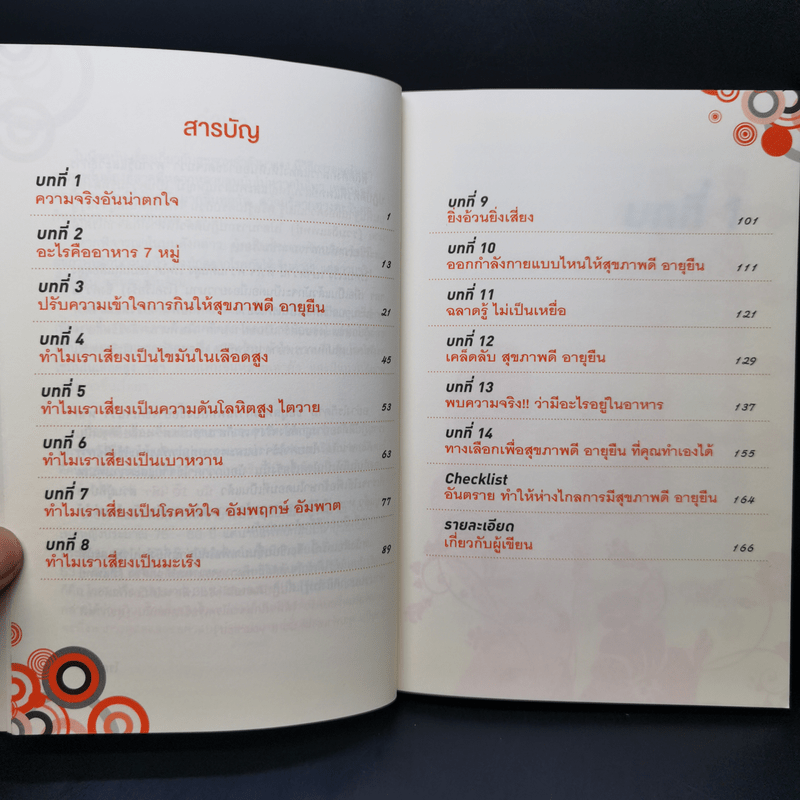 สารบัญ
บทที่ 1
ความจริงอันน่าตกใจ 1
บทที่ 2
อะไรคืออาหาร 7 หมู่ 13
บทที่ 3
ปรับความเข้าใจการกินให้สุขภาพดี อายุยืน 21
บทที่ 4
ทำไมเราเสี่ยงเป็นไขมันในเลือดสูง 45
บทที่ 5
ทำไมเราเสี่ยงเป็นความดันโลหิตสูง ไตวาย 53
บทที่ 6
ทำไมเราเสี่ยงเป็นเบาหวาน 63
บทที่ 7
ทำไมเราเสี่ยงเป็นโรคหัวใจ อัมพฤกษ์ อัมพาต 77
บทที่ 8
ทำไมเราเสี่ยงเป็นมะเร็ง 89
บทที่ 9
ยิ่งอ้วนยิ่งเสี่ยง 101
บทที่ 10
ออกกำลังกายแบบไหนให้สุขภาพดี อายุยืน 111
บทที่ 11
ฉลาดรู้ ไม่เป็นเหยื่อ 121
บทที่ 12
เคล็ดลับ สุขภาพดี อายุยืน 129
บทที่ 13
พบความจริง!! ว่ามีอะไรอยู่ในอาหาร 137
บทที่ 14
ทางเลือกเพื่อสุขภาพดี อายุยืน ที่คุณทำเองได้ 155
Checklist
อันตราย ทำให้ห่างไกลการมีสุขภาพดี อายุยืน 164
รายละเอียด
เกี่ยวกับผู้เขียน 166